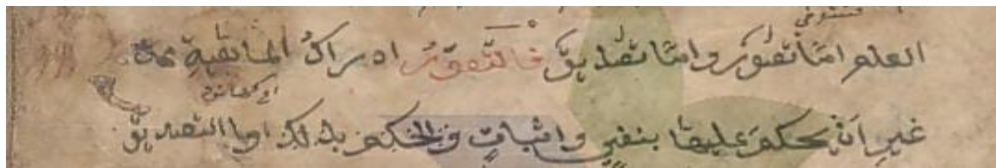 العلم اما تصور واما تصديق فالتصور ادراك الماهية من
غير ان يحكم عليها بنفي واثبات والحكم بذلك اما التصديق